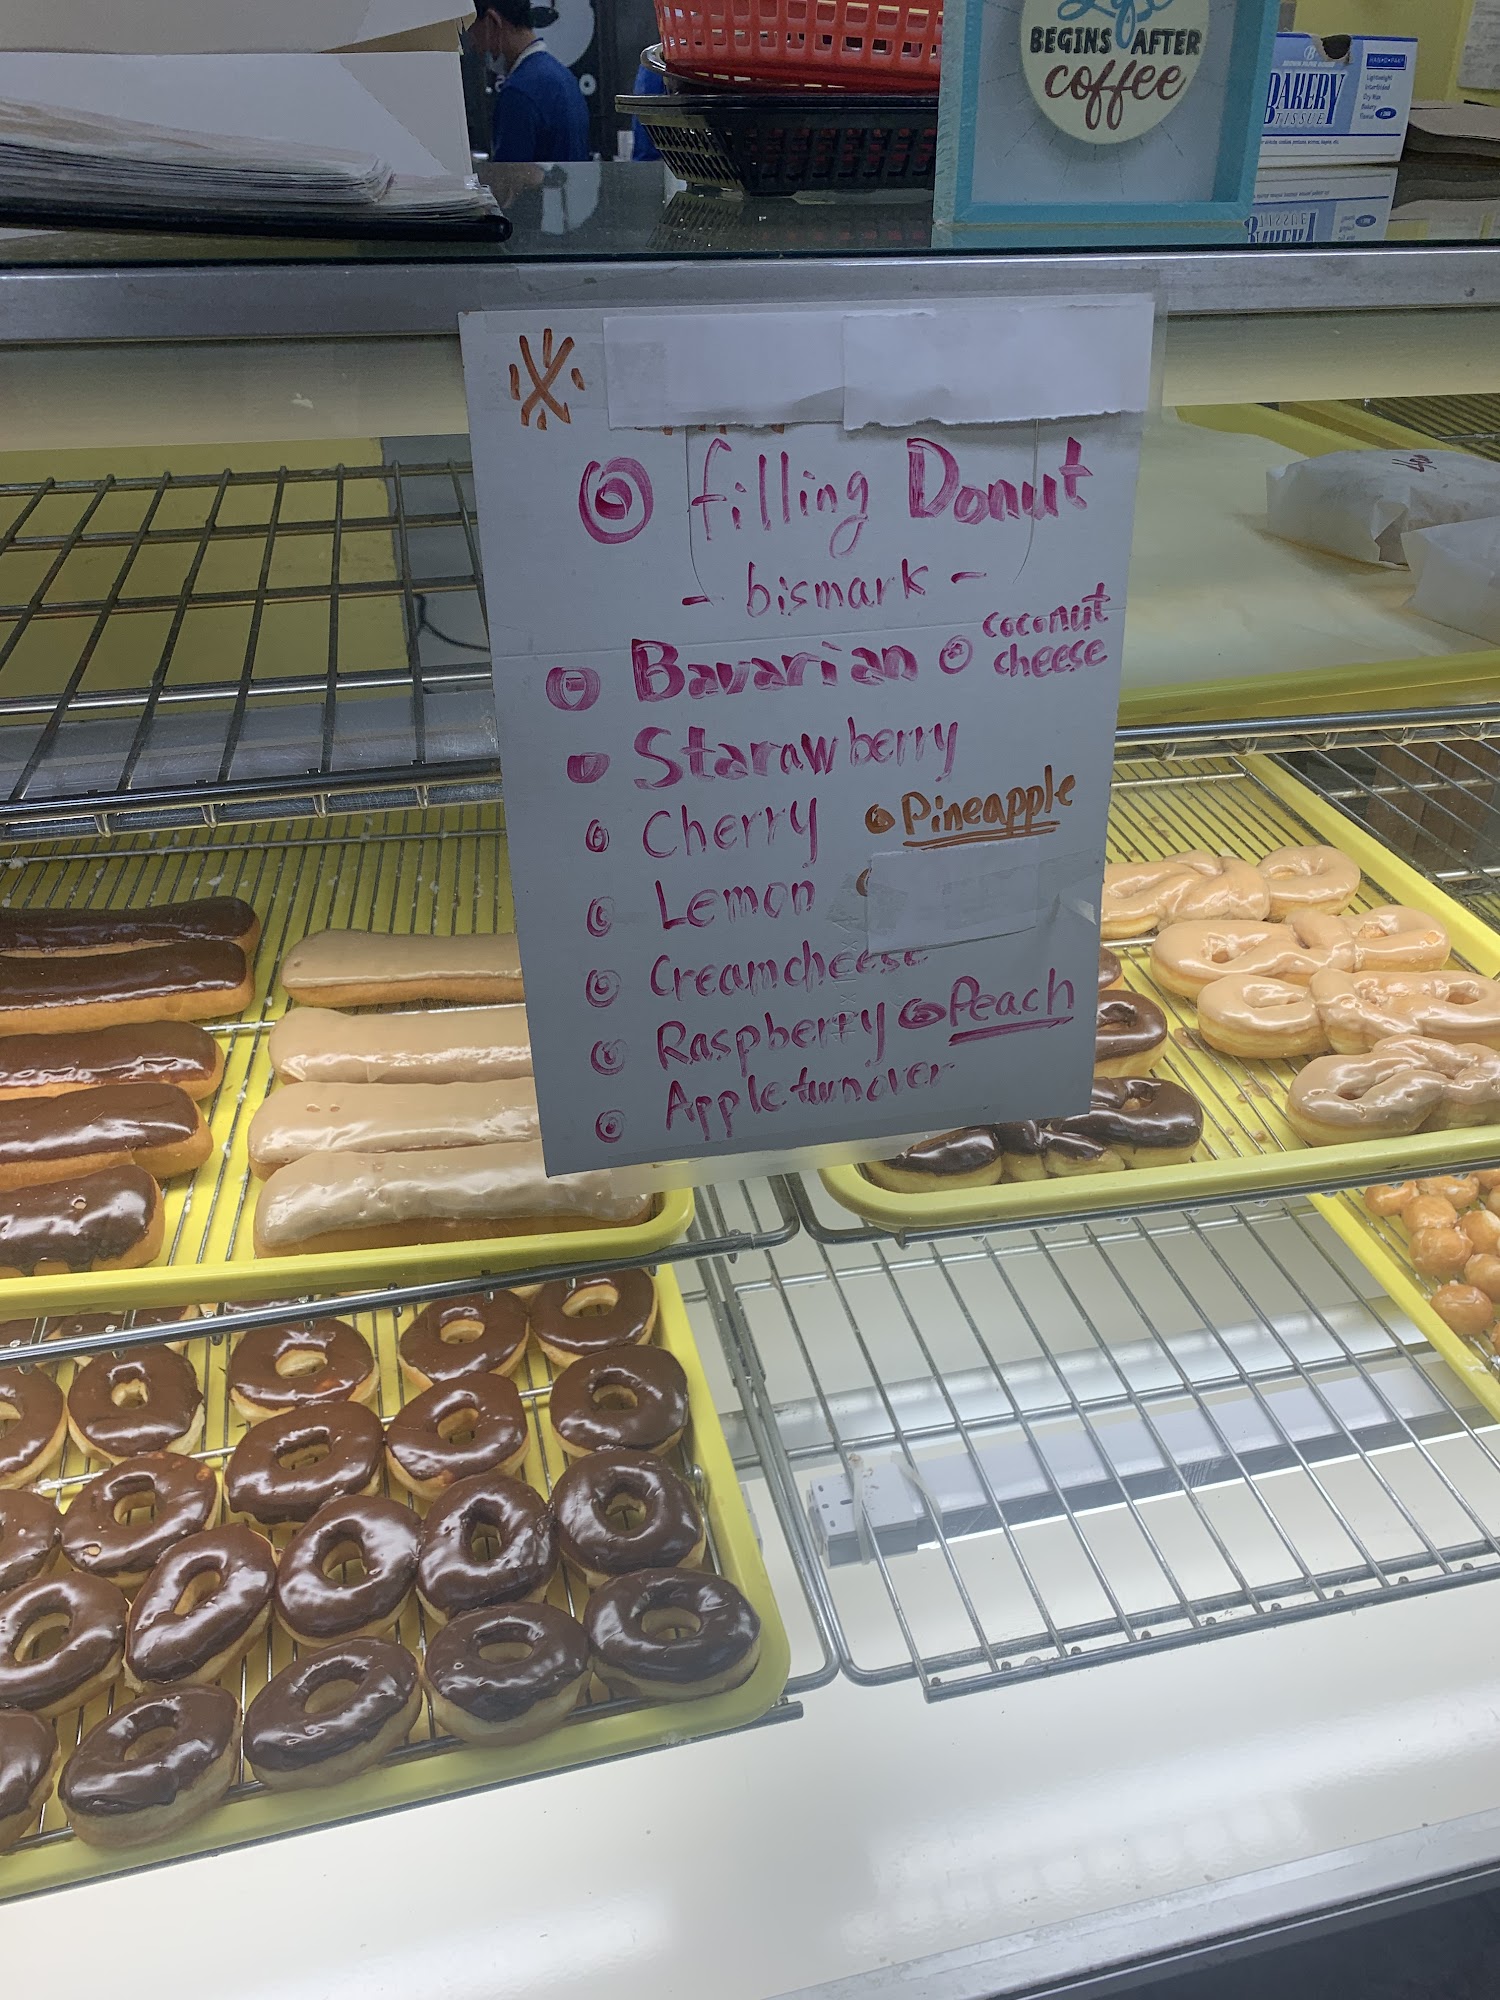 Life
BEGINS AFTER
coffee
BAKERY
TISSUE
filling Donut
- bismark -
Bavarian
coconut
cheese
Starawberry
Cherry
Pineapple
Lemon
Creamcheese
Raspberry
Peach
Apple turnover